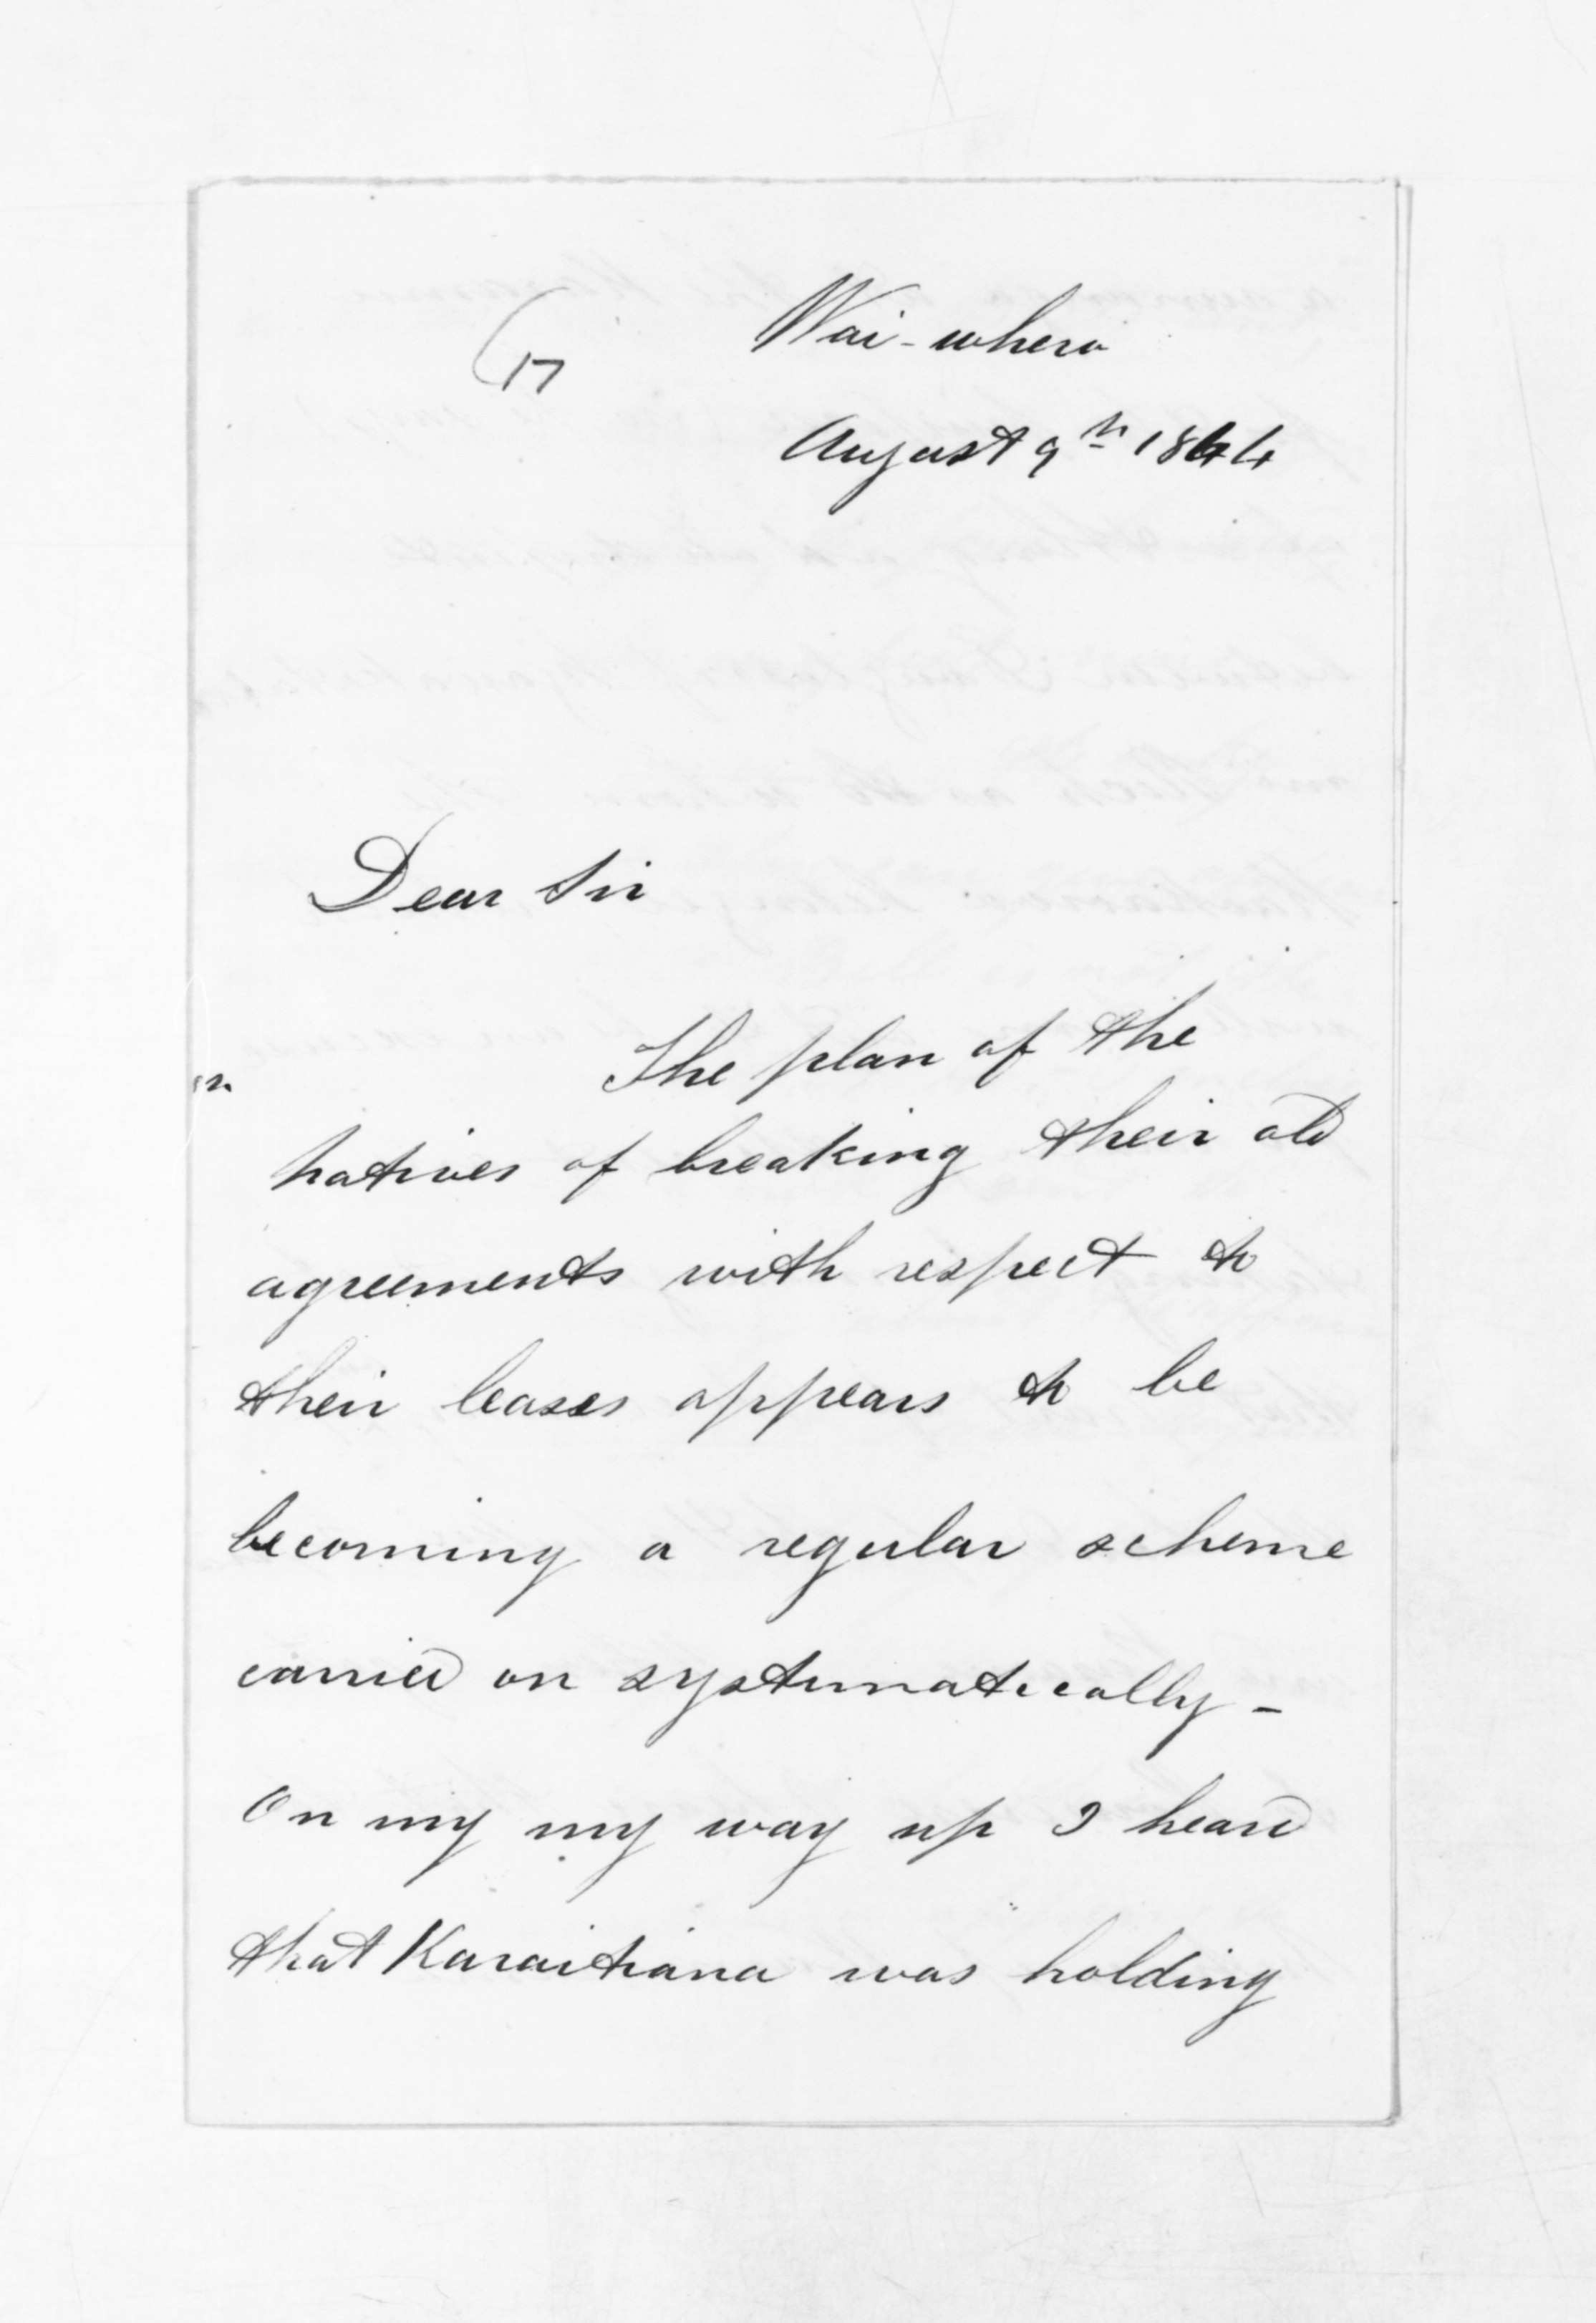 17
Wai-whero
August 9th 1864
Dear Sir
The plan of the
natives of breaking their old
agreements with respect to
their leases appears to be
becoming a regular scheme
carried on systematically -
On my my way up I heard
that Karaitiana was holding